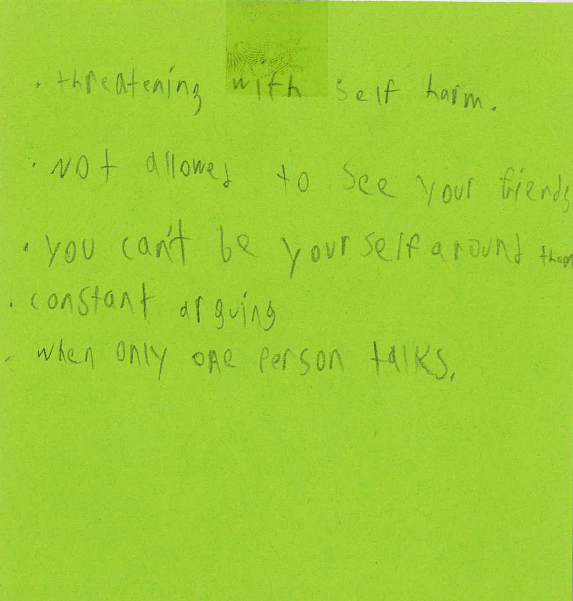 · threatening with self harm.
· NOt allowed to see your friends
· you can't be yourself around them
· constant arguing
- when only one person talks.